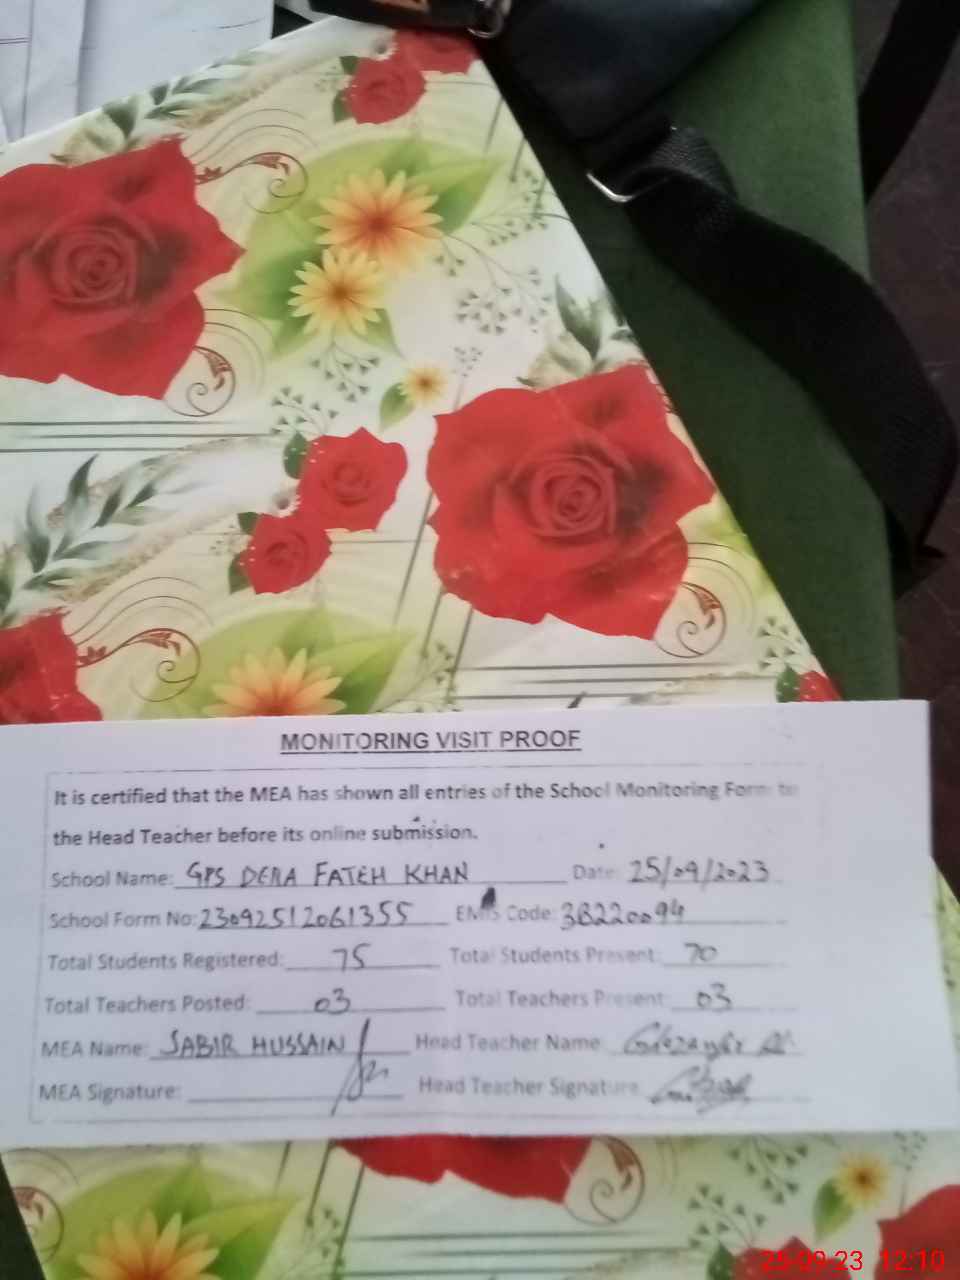 MONITORING VISIT PROOF
It is certified that the MEA has shown all entries of the School Monitoring Form to
the Head Teacher before its online submission.
School Name: GPS DERA FATEH KHAN Date: 25/09/2023
School Form No: 23092512061355 EMIS Code: 38220094
Total Students Registered: 75 Total Students Present: 70
Total Teachers Posted: 03 Total Teachers Present: 03
MEA Name: SABIR HUSSAIN Head Teacher Name:
MEA Signature: Head Teacher Signature:
25-09-23 12:10